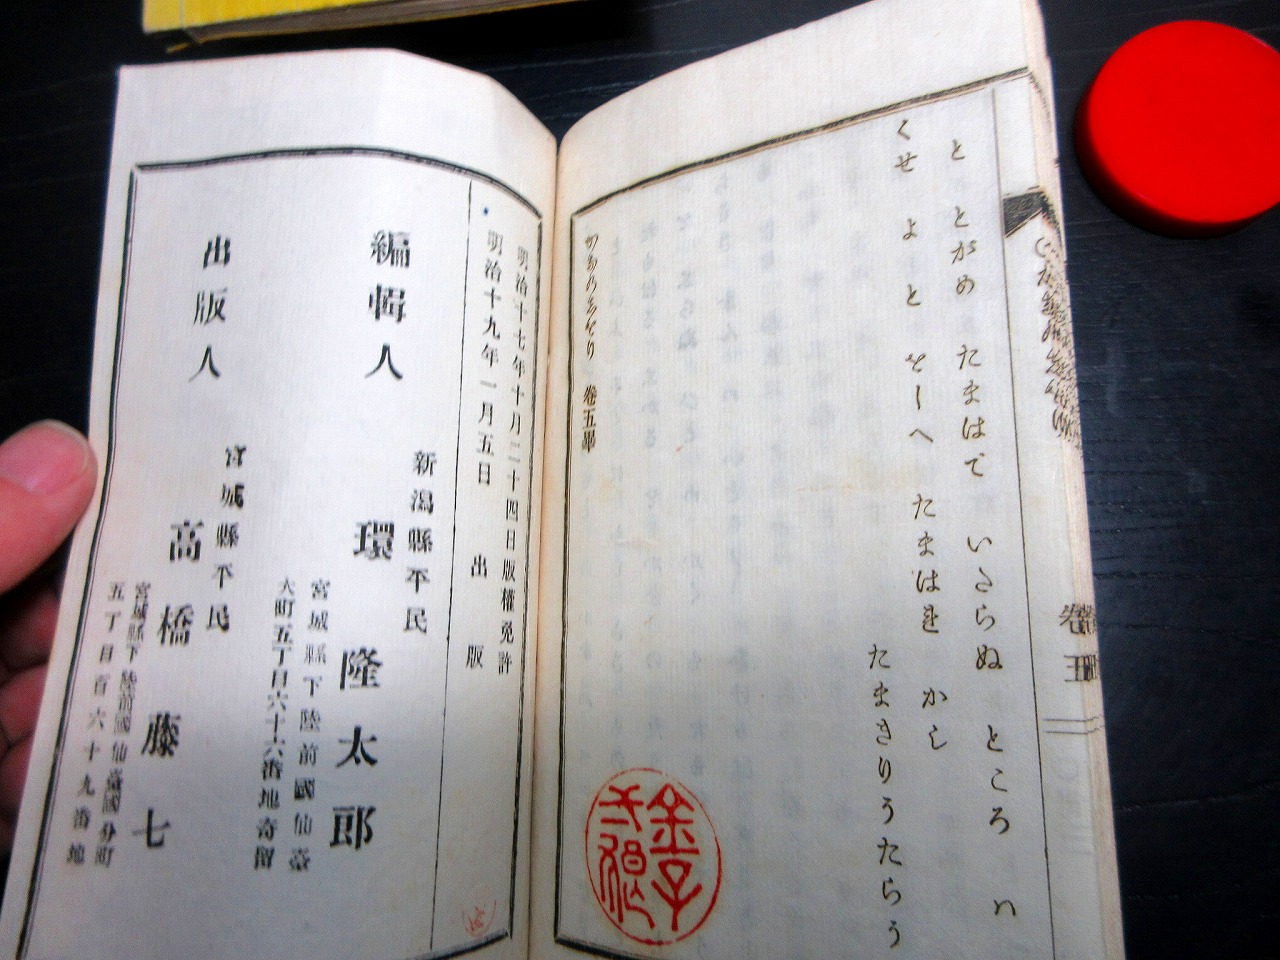 と とがめ たまはで いさらぬ ところ ハ
くせ よ と をしへ たまはき かし
たまきりうたらう
卷五畢
明治十七年十月二十四日版權免許
明治十九年一月五日 出版
編輯人
新潟縣平民
環 隆太郎
宮城縣下陸前國仙臺
大町五丁目六十六番地寄留
出版人
宮城縣平民
高橋藤七
宮城縣下陸前國仙臺國分町
五丁目百六十九番地